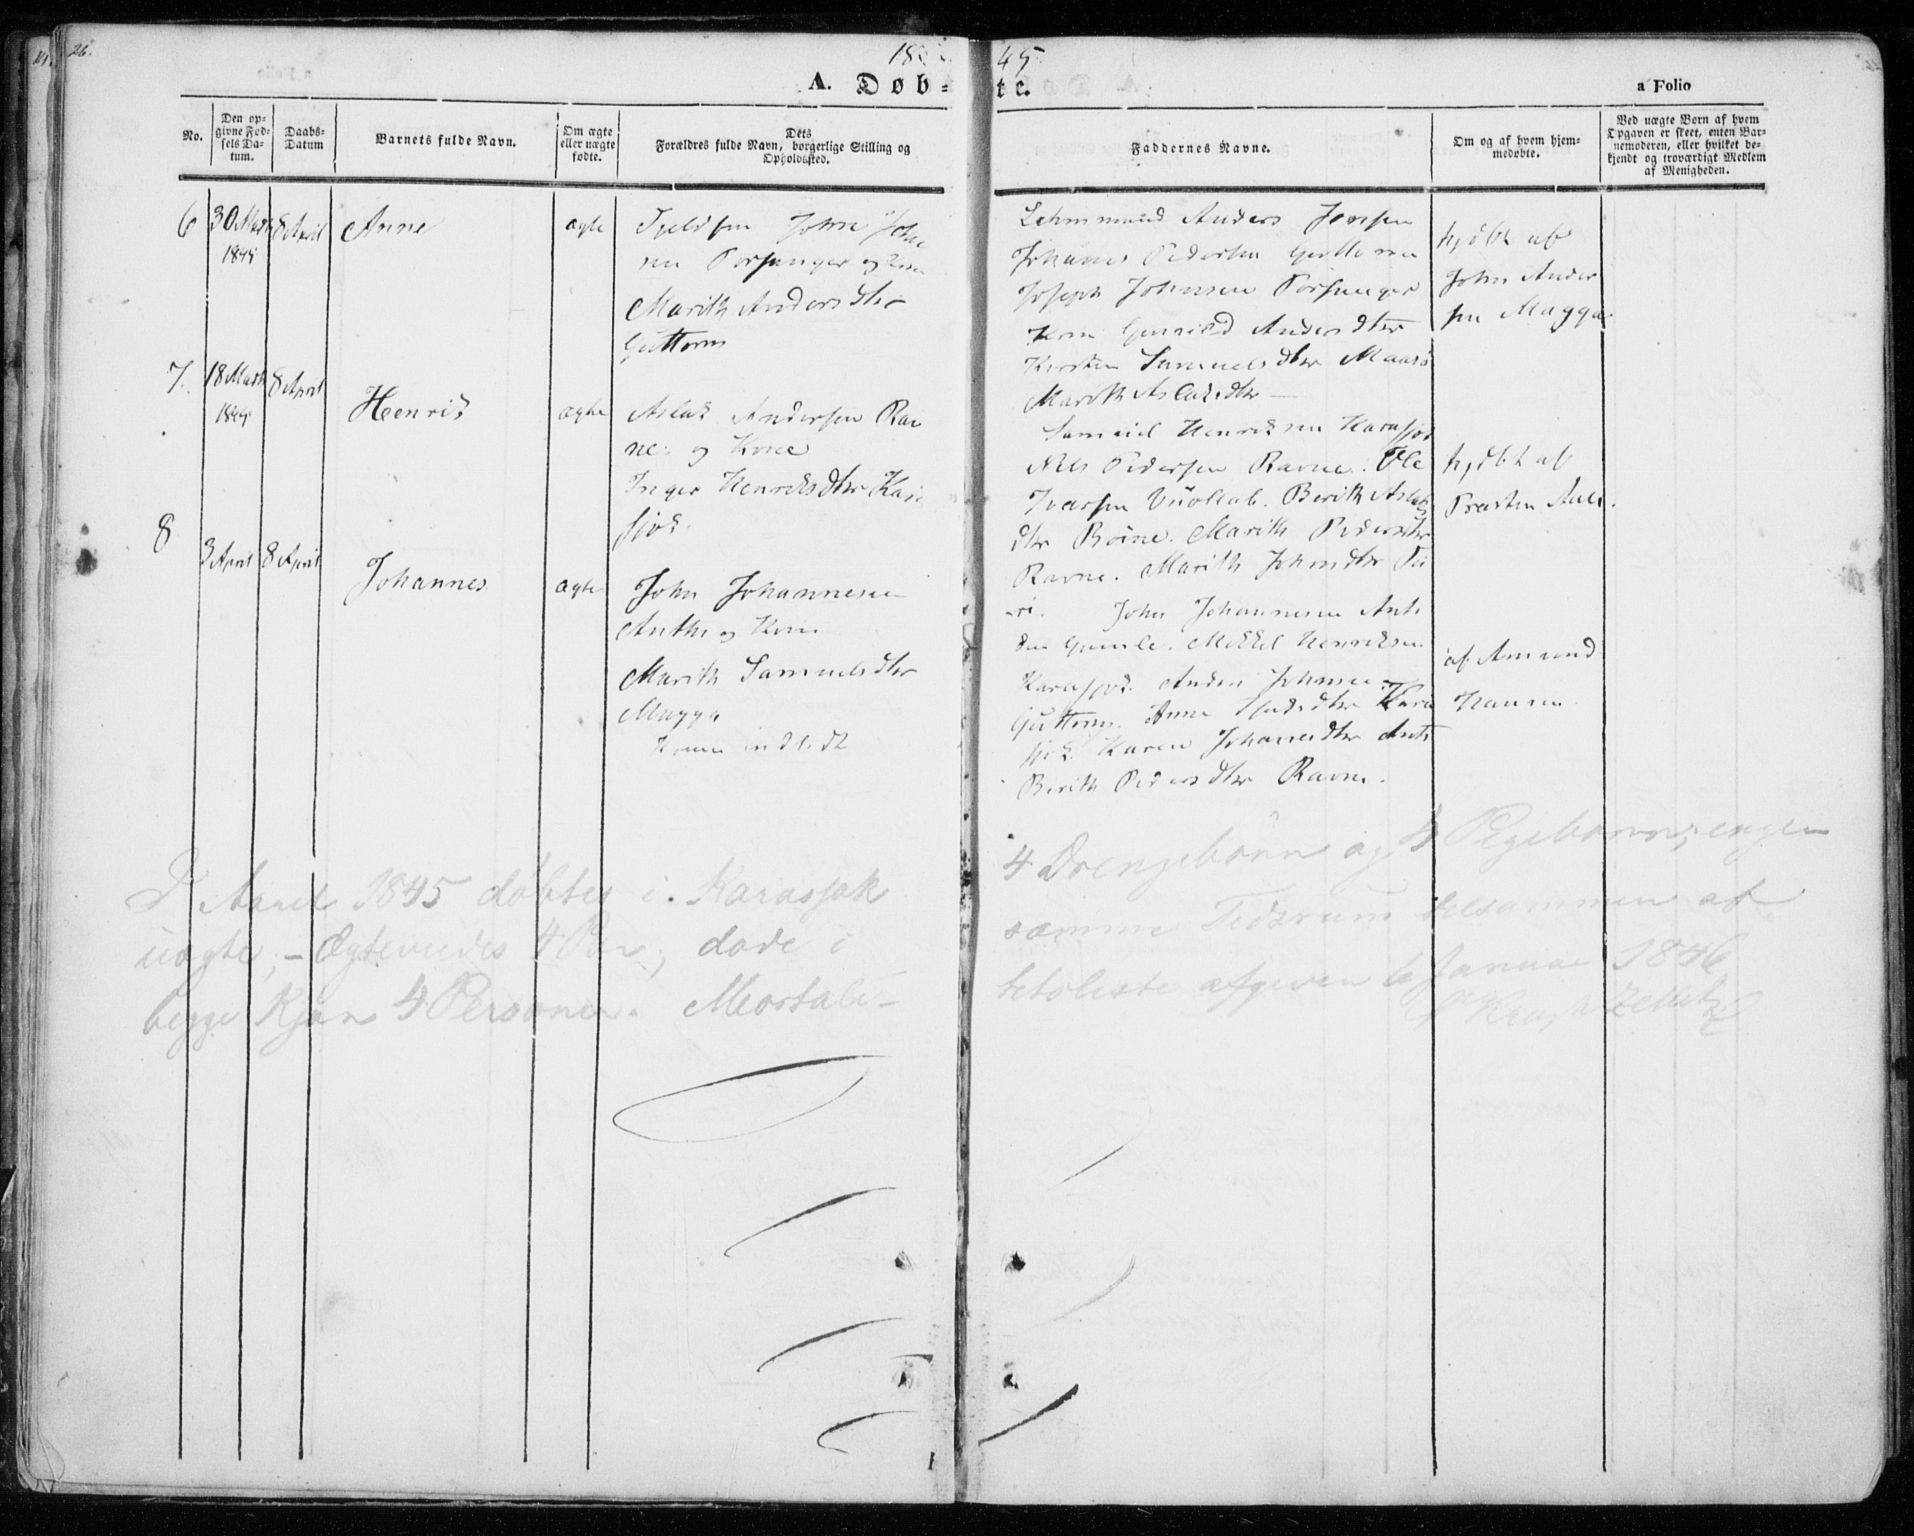 26.
1845
A. Døbte.
a Folio
No.
Den opgivne Fødsels Datum.
Daabs-Datum
Barnets fulde Navn.
Om ægte eller uægte fødte.
Dets Forældres fulde Navn, borgerlige Stilling og Opholdssted.
Faddernes Navne.
Om og af hvem hjemmedøbte.
Ved uægte Børn af hvem Opgaven er skeet, enten Barnemoderen, eller hvilket bekjendt og troværdigt Medlem af Menigheden.
6
30 Marts
1845
8 April
Anne
ægte
John John
sen Porsanger og Kone
Marith Andersdtr
Guttorm
Anders Jensen
Johannes Pedersen Guttorm
Joseph Johnsen Porsanger
Kone Gunild Andersdtr
Kirsten Samuelsdtr
Marith Aslaksdtr
hjdbt af
John Ander
sen Magga
7.
18 Marts
1845
8 April
Henrik
ægte
Aslak Andersen Rav
ne og Kone
Inger Henriksdtr Kara
sjok.
Samuel Henriksen Karasjok
Nils Pedersen Ravne. Ole
Ivarsen Vuollab. Berith Aslaks
dtr Boine. Marith Pedersdtr
Ravne. Marith Johnsdtr
hjdbt af
Præsten
8
3 April
8 April
Johannes
ægte
John Johannesen
Anthi og Kone
Marith Samuelsdtr
Magga
Konen indledt
John Johannesen Anti
den Gamle. Mikkel Henriksen
Karasjok. Anders Johnsen
Guttorm. Anne dtr Kara
sjok. Karen Johannesdtr Anti
Berith Pedersdtr Ravne.
af Amund
Hansen
I Aaret 1845 døbtes i Karasjok 4 Drengebørn og 4 Pigebørn; ingen
uægte; – Ægteviedes 4 Par; døde i samme Tidsrum tilsammen af
begge Kjøn 4 Personer. Mortalitetsliste afgiven 6 Januar 1846
Zetlitz